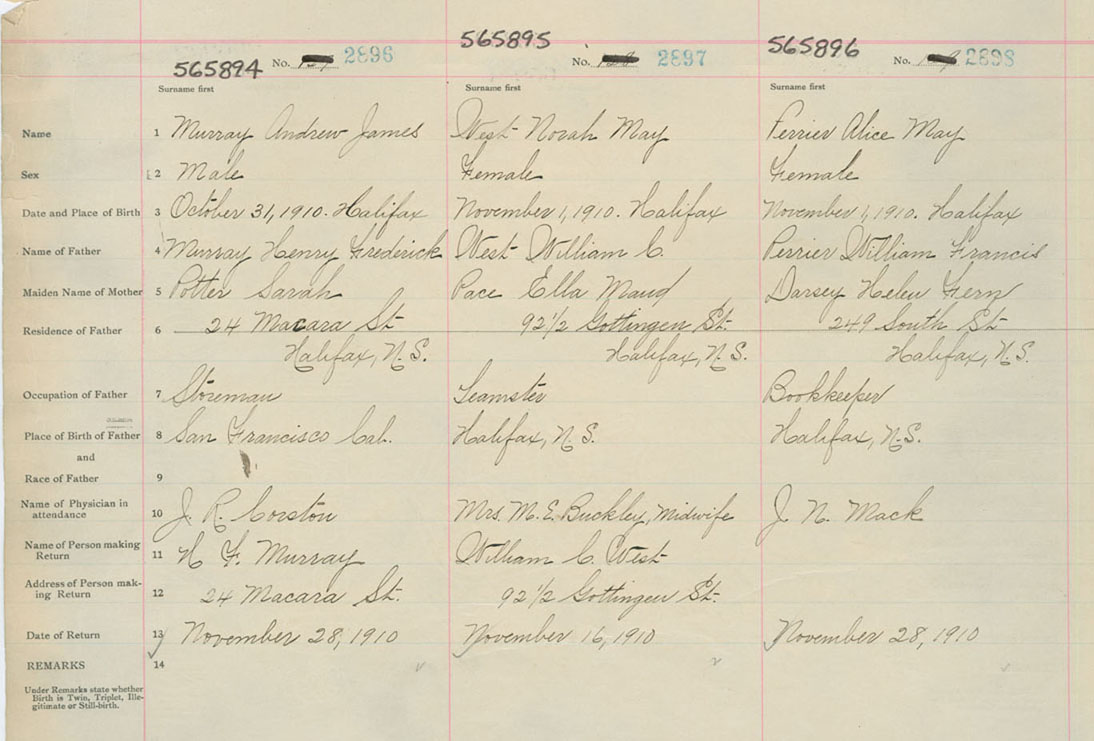 565894 No. 2896 565895 No. 2897 565896 No. 2898
Surname first Surname first Surname first
Name 1 Murray Andrew James West Norah May Ferrier Alice May
Sex 2 Male Female Female
Date and Place of Birth 3 October 31, 1910. Halifax November 1, 1910. Halifax November 1, 1910. Halifax
Name of Father 4 Murray Henry Frederick West William C. Perrier William Francis
Maiden Name of Mother 5 Potter Sarah Pace Ella Maud Darsey Helen Fern
Residence of Father 6 24 Macara St. 92 1/2 Gottingen St. 249 South St.
Halifax, N.S. Halifax, N.S. Halifax, N.S.
Occupation of Father 7 Storeman Teamster Bookkeeper
Place of Birth of Father 8 San Francisco Cal. Halifax, N.S. Halifax, N.S.
and
Race of Father 9
Name of Physician in
attendance 10 J. R. Corston Mrs. M. E. Buckley, Midwife J. N. Mack
Name of Person making
Return 11 H. F. Murray William C. West
Address of Person mak-
ing Return 12 24 Macara St. 92 1/2 Gottingen St.
Date of Return 13 November 28, 1910 November 16, 1910 November 28, 1910
REMARKS 14
Under Remarks state whether
Birth is Twin, Triplet, Ille-
gitimate or Still-birth.